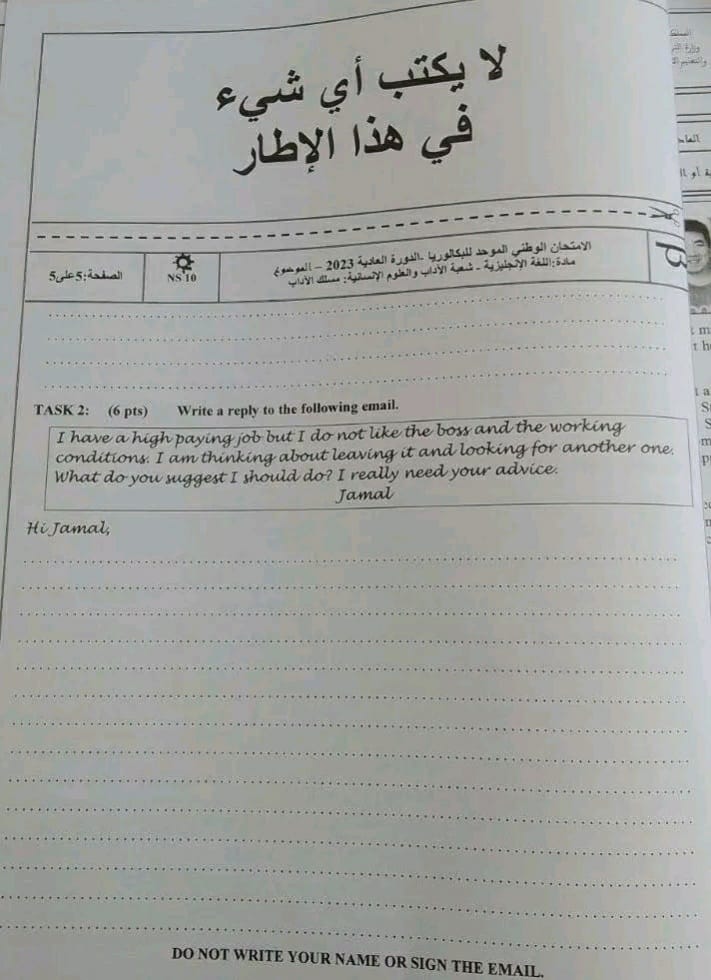 لا يكتب أي شيء
في هذا الإطار
الصفحة: 5 على 5
NS 10
الامتحان الوطني الموحد للبكالوريا -الدورة العادية 2023 – الموضوع
مادة: اللغة الإنجليزية - شعبة الآداب والعلوم الإنسانية: مسلك الآداب
TASK 2: (6 pts) Write a reply to the following email.
I have a high paying job but I do not like the boss and the working
conditions. I am thinking about leaving it and looking for another one.
What do you suggest I should do? I really need your advice.
Jamal
Hi Jamal,
DO NOT WRITE YOUR NAME OR SIGN THE EMAIL.